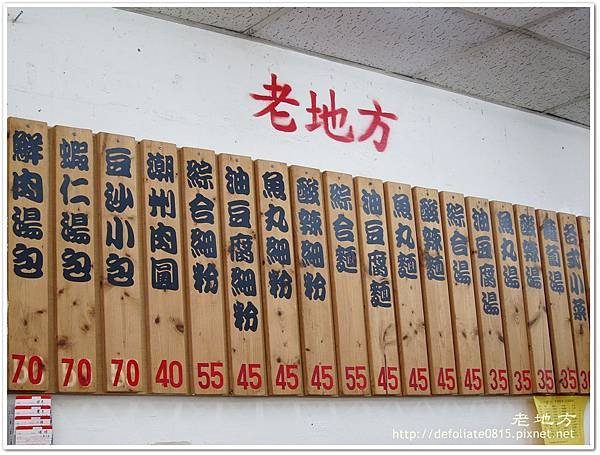 老地方
鮮肉湯包 70
蝦仁湯包 70
豆沙小包 70
潮州肉圓 40
綜合細粉 55
油豆腐細粉 45
魚丸細粉 45
酸辣細粉 45
綜合麵 55
油豆腐麵 45
魚丸麵 45
酸辣麵 45
綜合湯 45
油豆腐湯 35
魚丸湯 35
酸辣湯 35
湯 35
台式小菜 30
老地方
http://defoliate0815.pixnet.net